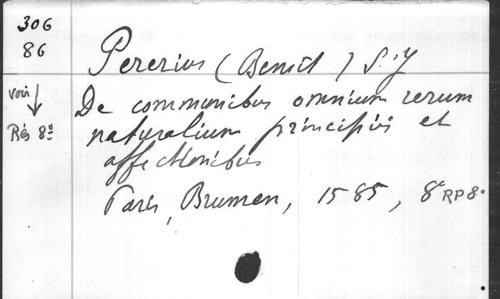 306
86
Pererius (Benoît) S.J
voir
De communibus omnium rerum
Rés 8°
naturalium principiis et
affectionibus
Paris, Brumen, 1585, 8° RP 8°